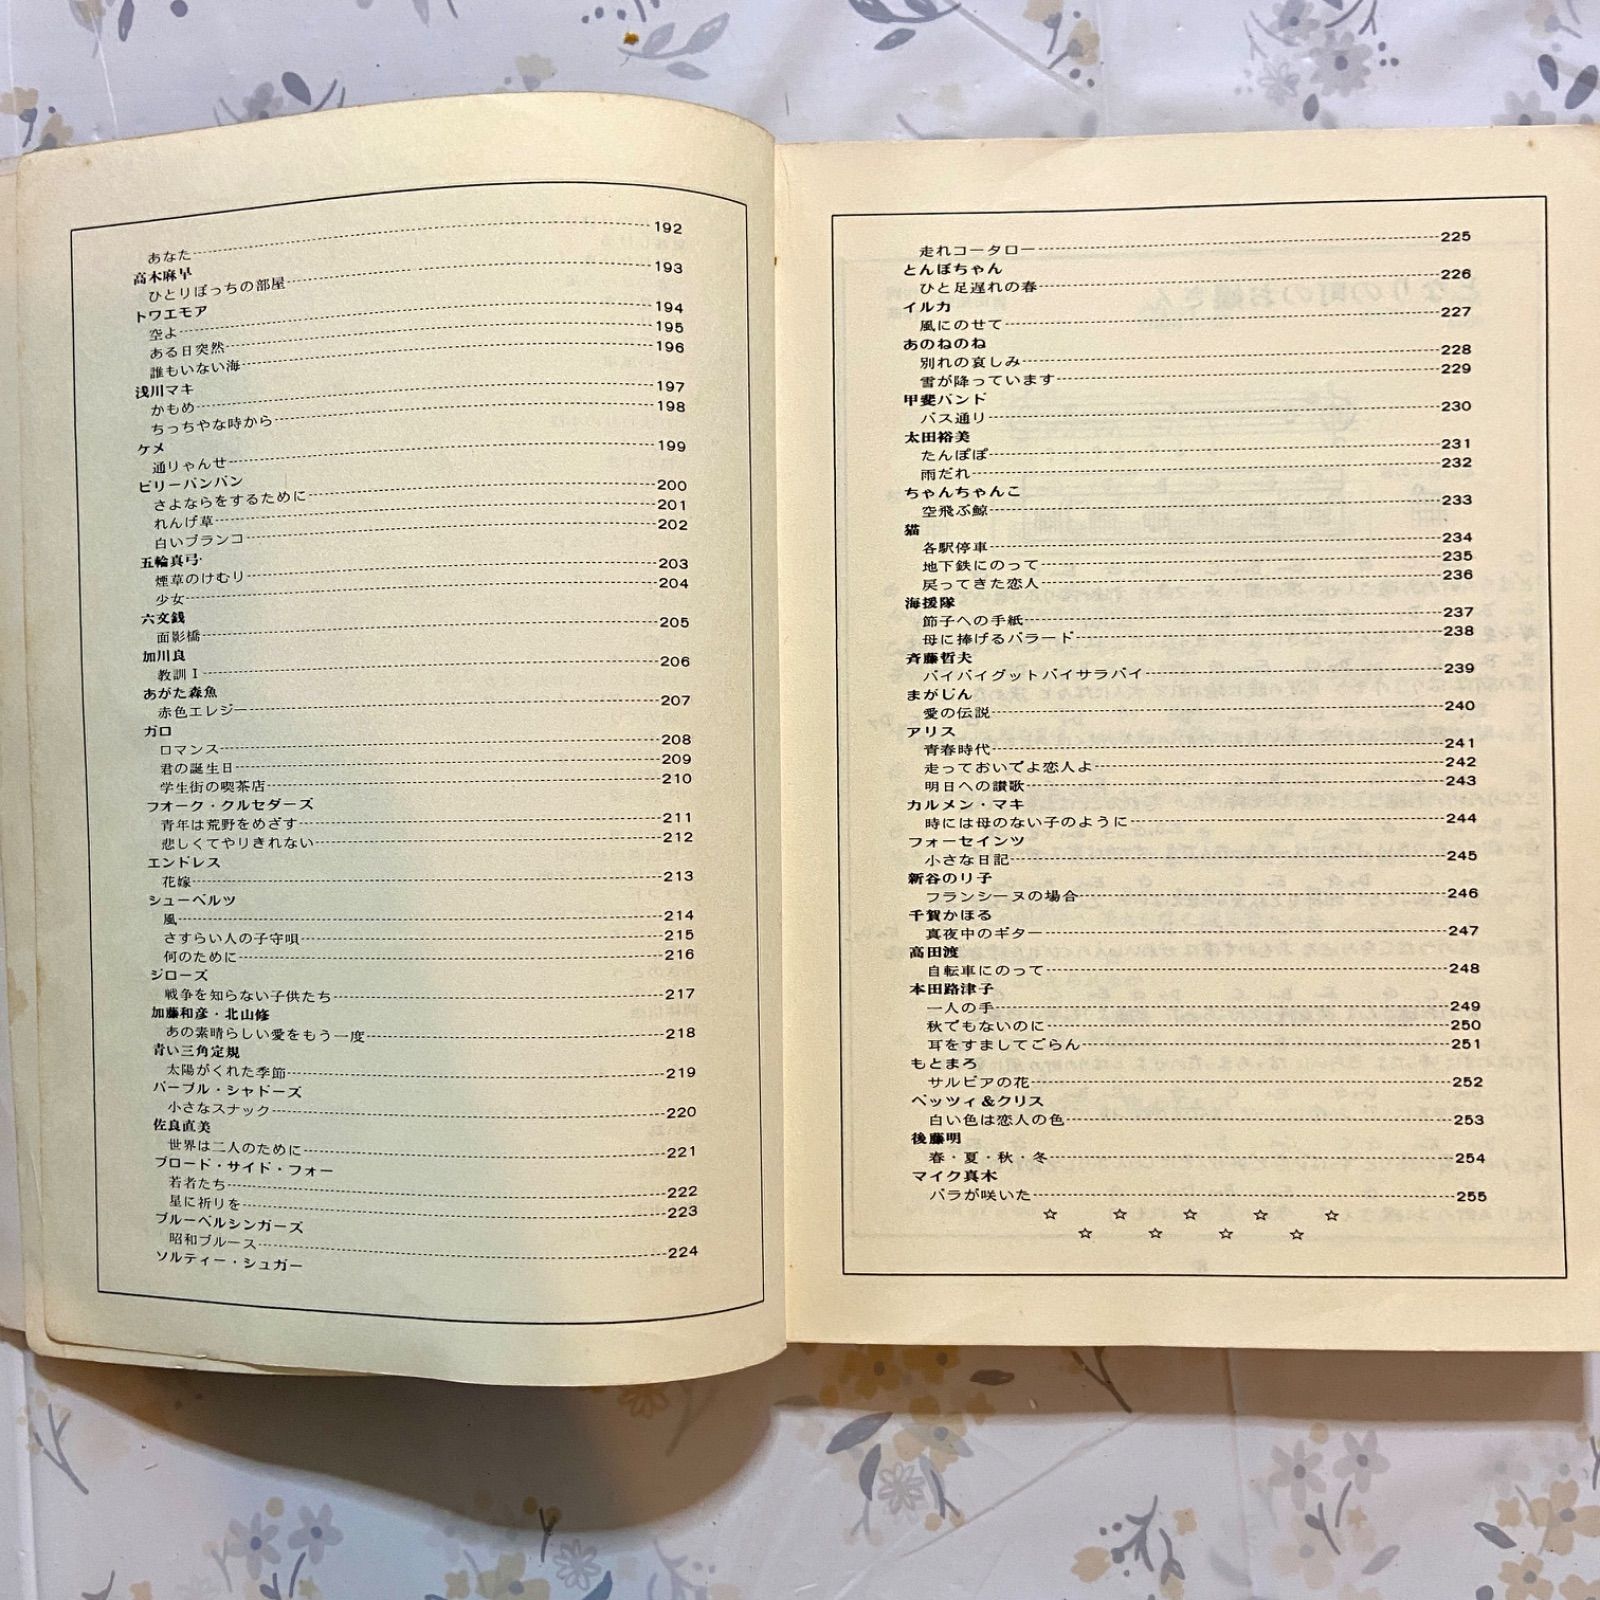 あなた 192
高木麻早
ひとりぼっちの部屋 193
トワエモア
空よ 194
ある日突然 195
誰もいない海 196
浅川マキ
かもめ 197
ちっちゃな時から 198
ケメ
通りゃんせ 199
ビリーバンバン
さよならをするために 200
れんげ草 201
白いブランコ 202
五輪真弓
煙草のけむり 203
少女 204
六文銭
面影橋 205
加川良
教訓Ⅰ 206
あがた森魚
赤色エレジー 207
ガロ
ロマンス 208
君の誕生日 209
学生街の喫茶店 210
フォーク・クルセダーズ
青年は荒野をめざす 211
悲しくてやりきれない 212
エンドレス
花嫁 213
シューベルツ
風 214
さすらい人の子守唄 215
何のために 216
ジローズ
戦争を知らない子供たち 217
加藤和彦・北山修
あの素晴らしい愛をもう一度 218
青い三角定規
太陽がくれた季節 219
パープル・シャドーズ
小さなスナック 220
佐良直美
世界は二人のために 221
ブロード・サイド・フォー
若者たち 222
星に祈りを 223
ブルーベルシンガーズ
昭和ブルース 224
ソルティー・シュガー
走れコータロー 225
とんぼちゃん
ひと足遅れの春 226
イルカ
風にのせて 227
あのねのね
別れの哀しみ 228
雪が降っています 229
甲斐バンド
バス通り 230
太田裕美
たんぽぽ 231
雨だれ 232
ちゃんちゃんこ
空飛ぶ鯨 233
猫
各駅停車 234
地下鉄にのって 235
戻ってきた恋人 236
海援隊
節子への手紙 237
母に捧げるバラード 238
斉藤哲夫
バイバイグットバイサラバイ 239
まがじん
愛の伝説 240
アリス
青春時代 241
走っておいでよ恋人よ 242
明日への讃歌 243
カルメン・マキ
時には母のない子のように 244
フォーセインツ
小さな日記 245
新谷のり子
フランシーヌの場合 246
千賀かほる
真夜中のギター 247
高田渡
自転車にのって 248
本田路津子
一人の手 249
秋でもないのに 250
耳をすましてごらん 251
もとまろ
サルビアの花 252
ベッツィ&クリス
白い色は恋人の色 253
後藤明
春・夏・秋・冬 254
マイク真木
バラが咲いた 255
☆ ☆ ☆ ☆ ☆
☆ ☆ ☆ ☆